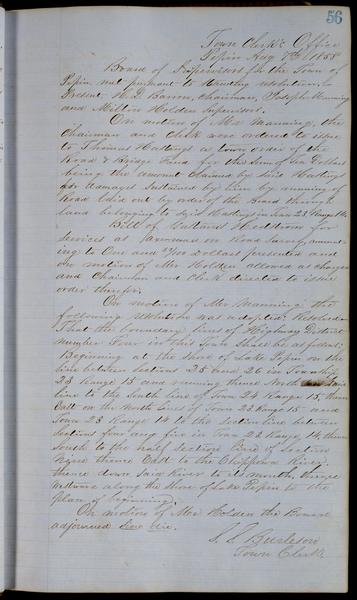 56
Town Clerk's Office
Pepin Aug 7th 1858
Board of Supervisors for the Town of
Pepin met pursuant to
Present H. D. Barron, Chairman, Joseph Manning
and Milton Holden Supervisors.
On motion of Mr Manning, the
Chairman and Clerk were ordered to issue
to Thomas Hastings a town order of the
Road & Bridge Fund for the Sum of ten Dollars
being the amount claimed by said Hastings
for damages sustained by him by running of
Road laid out by order of the Board through
land belonging to said Hastings in Town 23 Range 14
Bill of
services as on Road Survey, amount-
ing to One and /100 dollars presented and
on motion of Mr Holden allowed as charged
and Chairman and Clerk directed to issue
order therefor.
On motion of Mr Manning the
following resolution was adopted: Resolved
That the boundary lines of Highway District
Number Four in this Town Shall be as follows;
Beginning at the Shore of Lake Pepin on the
line between sections 25 and 26 in Township
23 Range 15 and running thence North on said
line to the South line of Town 24 Range 15, thence
East on the North lines of Town 23 Range 15 and
Town 23 Range 14 to the section line between
sections four and five in Town 23 Range 14, thence
South to the half section line of Section
Nine thence East to the Chippewa River,
thence down Said River to its mouth, thence
westward along the Shore of Lake Pepin to the
place of beginning.
On motion of Mr Holden the Board
adjourned Sine Die.
S. S. Burleson
Town Clerk